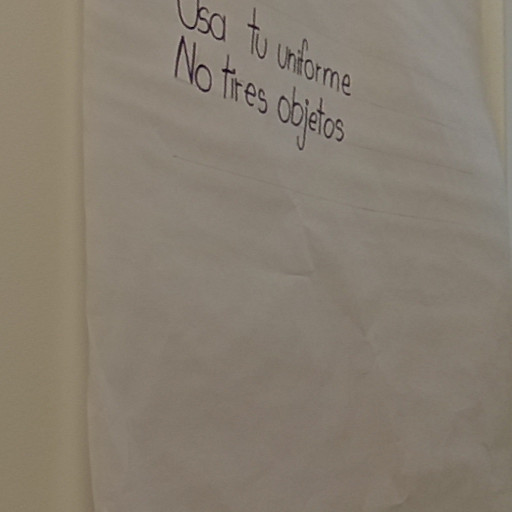 Usa tu uniforme
No tires objetos